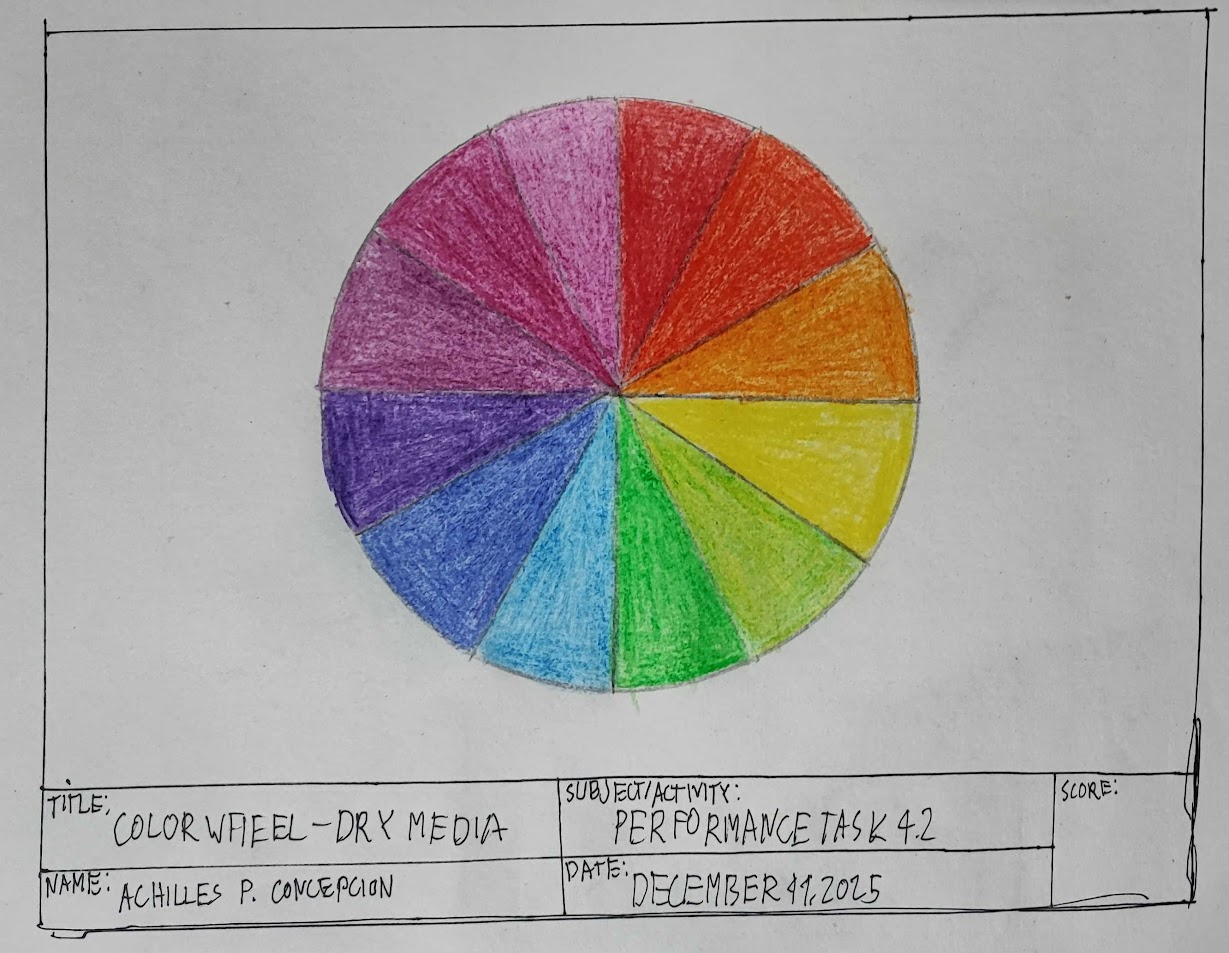 TITLE:
COLOR WHEEL - DRY MEDIA
SUBJECT/ACTIVITY:
PERFORMANCE TASK 4.2
SCORE:
NAME: ACHILLES P. CONCEPCION
DATE:
DECEMBER 11, 2025